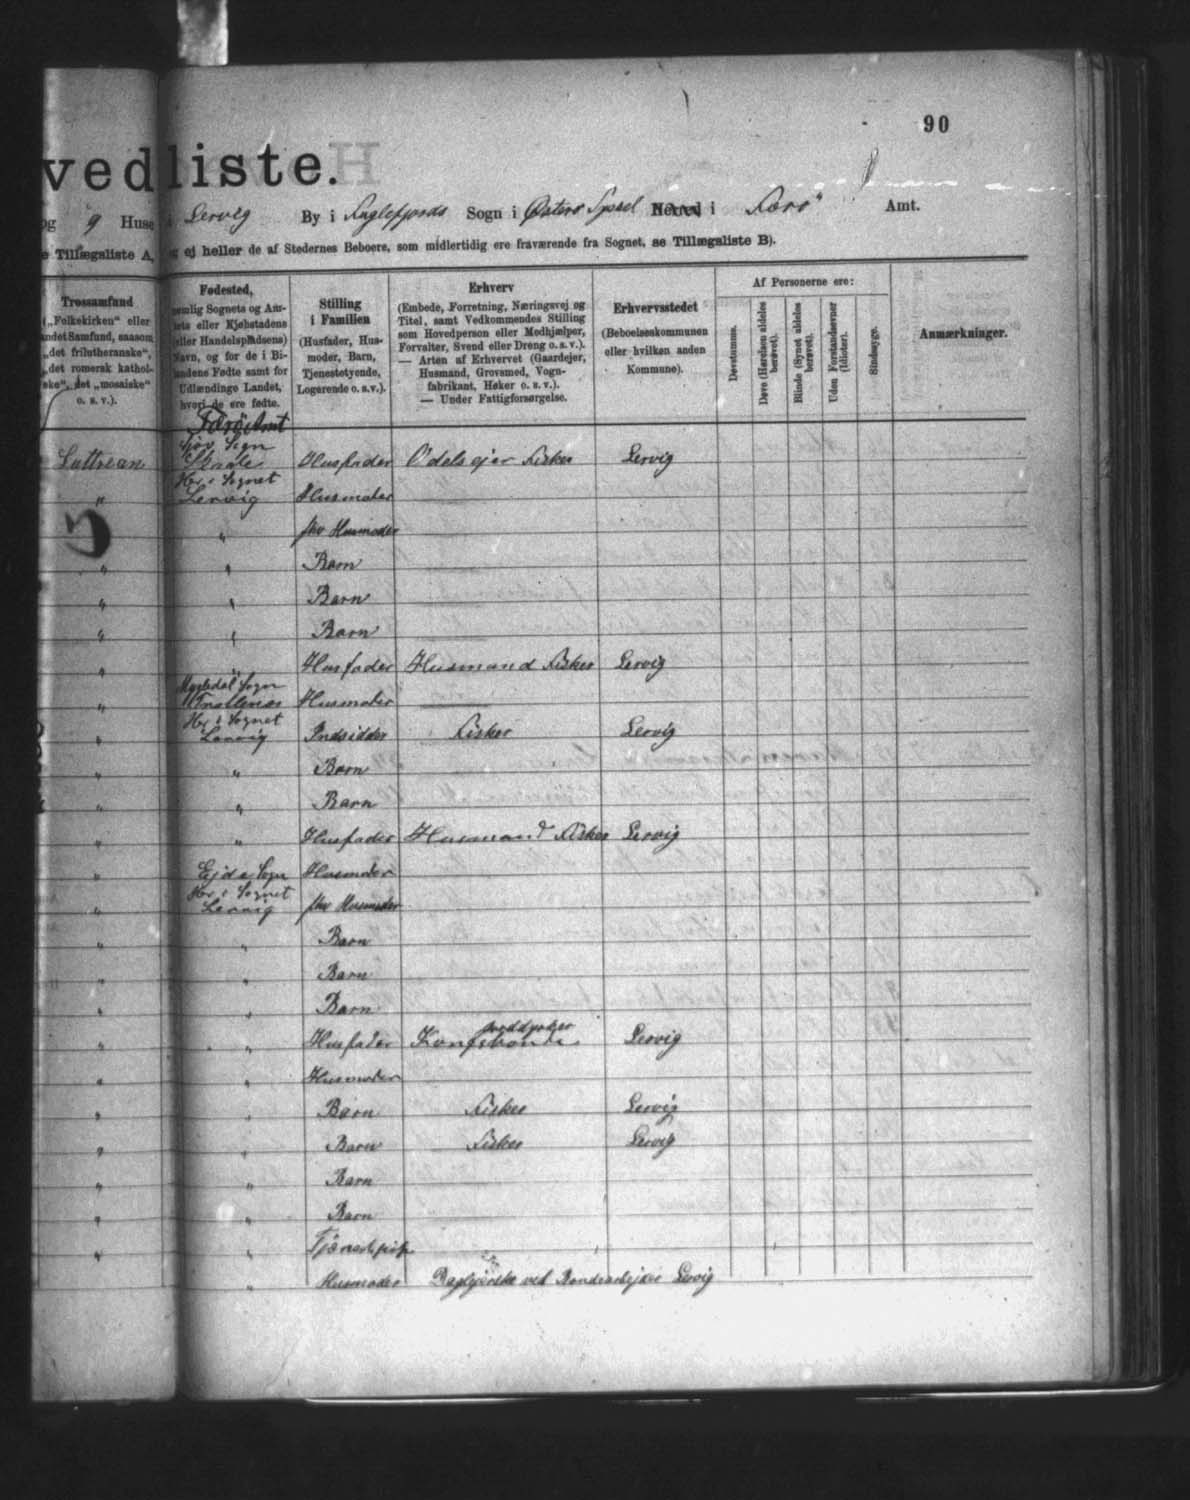 90
vedliste.
og 9 Huse i Lervig By i Fuglefjords Sogn i Østerø Syssel Herred i Færø Amt.
e Tillægsliste A, og ej heller de af Stedernes Beboere, som midlertidig ere fraværende fra Sognet, se Tillægsliste B).
Trossamfund
(„Folkekirken“ eller
andet Samfund, saasom
„det frilutheranske“,
„det romersk kathol-
ske“, det „mosaiske“
o. s. v.).
Fødested,
nemlig Sognets og Am-
tets eller Kjøbstadens
(eller Handelspladsens)
Navn, og for de i Bi-
landene Fødte samt for
Udlændinge Landet,
hvori de ere fødte.
Stilling
i Familien
(Husfader, Hus-
moder, Barn,
Tjenestetyende,
Logerende o. s. v.).
Erhverv
(Embede, Forretning, Næringsvej og
Titel, samt Vedkommendes Stilling
som Hovedperson eller Medhjælper,
Forvalter, Svend eller Dreng o. s. v.).
— Arten af Erhvervet (Gaardejer,
Husmand, Grovsmed, Vogn-
fabrikant, Høker o. s. v.).
— Under Fattigforsørgelse.
Erhvervsstedet
(Beboelseskommunen
eller hvilken anden
Kommune).
Af Personerne ere:
Døvstumme.
Døve (Hørelsen aldeles
berøvet).
Blinde (Synet aldeles
berøvet).
Uden Forstandsevner
(Idioter).
Sindssyge.
Anmærkninger.
Færø Amt
Sjov Sogn
Luttrean Skaale Husfader Odelsejer Fisker Lervig
Her i Sognet
„ Lervig Husmoder
„ fhv Husmoder
„ „ Barn
„ „ Barn
„ „ Barn
„ „ Husfader Husmand Fisker Lervig
Mygledal Sogn
„ Husmoder
Her i Sognet
„ Lervig Indsidder Fisker Lervig
„ „ Barn
„ „ Barn
„ „ Husfader Husmand Fisker Lervig
„ Ejde Sogn Husmoder
Her i Sognet
„ Lervig fhv Husmoder
„ „ Barn
„ „ Barn
„ „ Barn
„ „ Husfader Lervig
„ „ Husmoder
„ „ Barn Fisker Lervig
„ „ Barn Fisker Lervig
„ „ Barn
„ „ Barn
„ „
„ Husmoder Daglejerske ved Bondearbejder Lervig